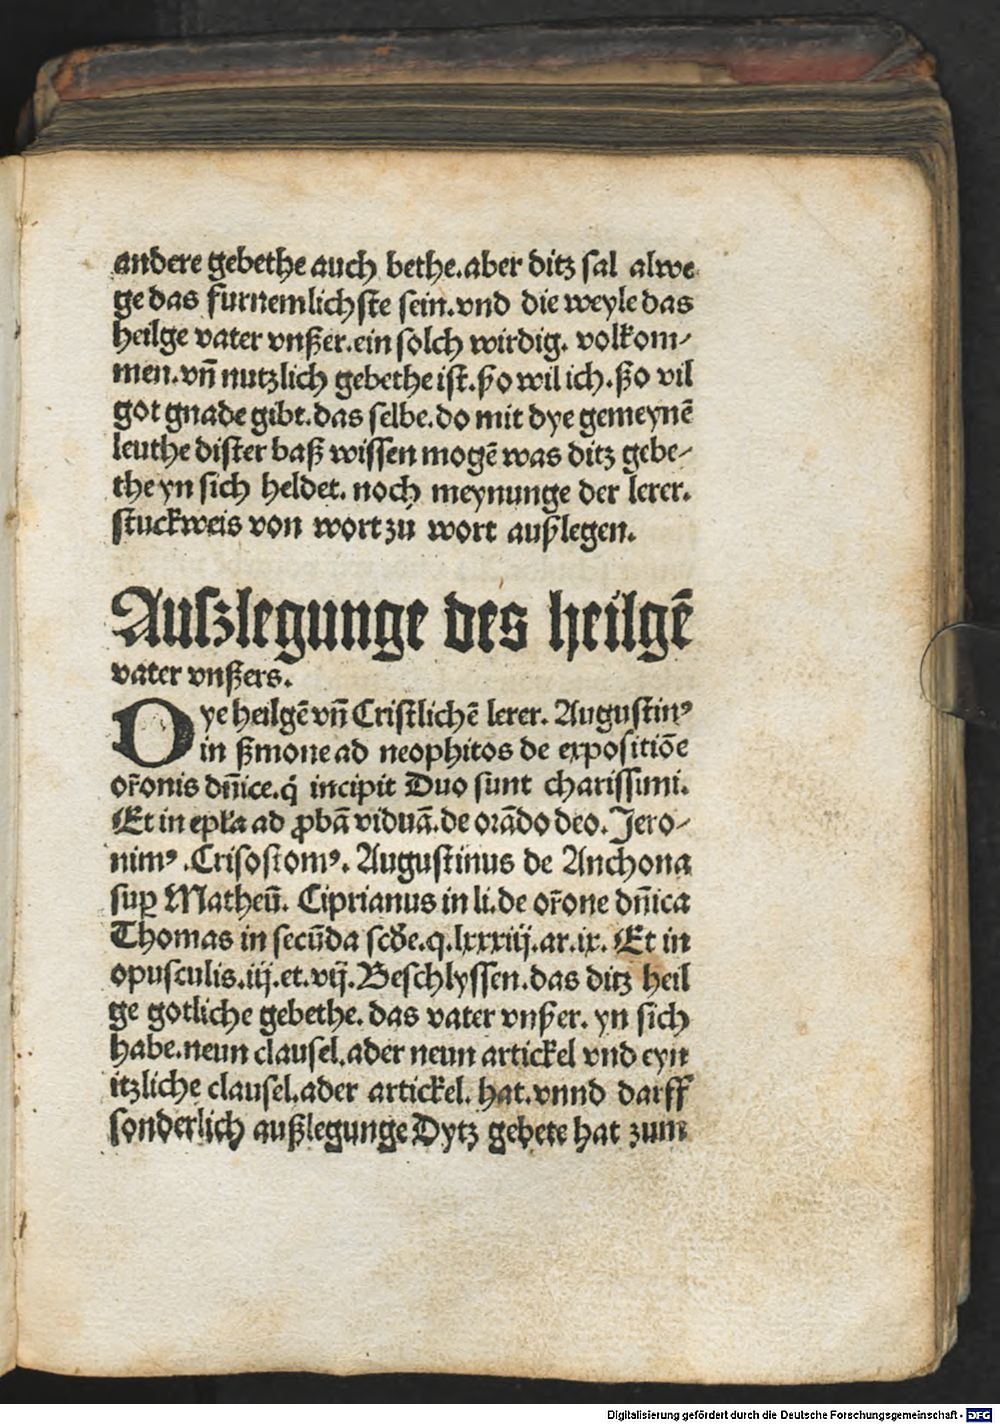 andere gebethe auch bethe.aber ditz sal alwe
ge das furnemlichste sein.vnd die weyle das
heilge vater vnßer.ein solch wirdig. volkom⸗
men.vn̄ nutzlich gebethe ist.ßo wil ich.ßo vil
got gnade gibt.das selbe.do mit dye gemeynē
leuthe dister baß wissen mogē was ditz gebe⸗
the yn sich heldet. noch meynunge der lerer.
stuckweis von wort zu wort außlegen.
Auszlegunge des heilgē
vater vnßers.
Dye heilgē vn̄ Cristlichē lerer. Augustinꝰ
in ßmone ad neophitos de expositiōe
or̄onis dn̄ice.q̇ incipit Duo sunt charissimi.
Et in epl̄a ad ꝓbā viduā.de orādo deo. Jero⸗
nimꝰ .Crisostomꝰ. Augustinus de Anchona
suꝑ Matheū. Ciprianus in li.de or̄one dn̄ica
Thomas in secūda scd̄e.q.lxxxiij.ar.ix. Et in
opusculis.iij.et.vij.Beschlyssen.das ditz heil
ge gotliche gebethe. das vater vnßer. yn sich
habe.neun clausel.ader neun artickel vnd eyn
itzliche clausel.ader artickel. hat.vnnd darff
sonderlich außlegunge Dytz gebete hat zum
Digitalisierung gefördert durch die Deutsche Forschungsgemeinschaft - DFG